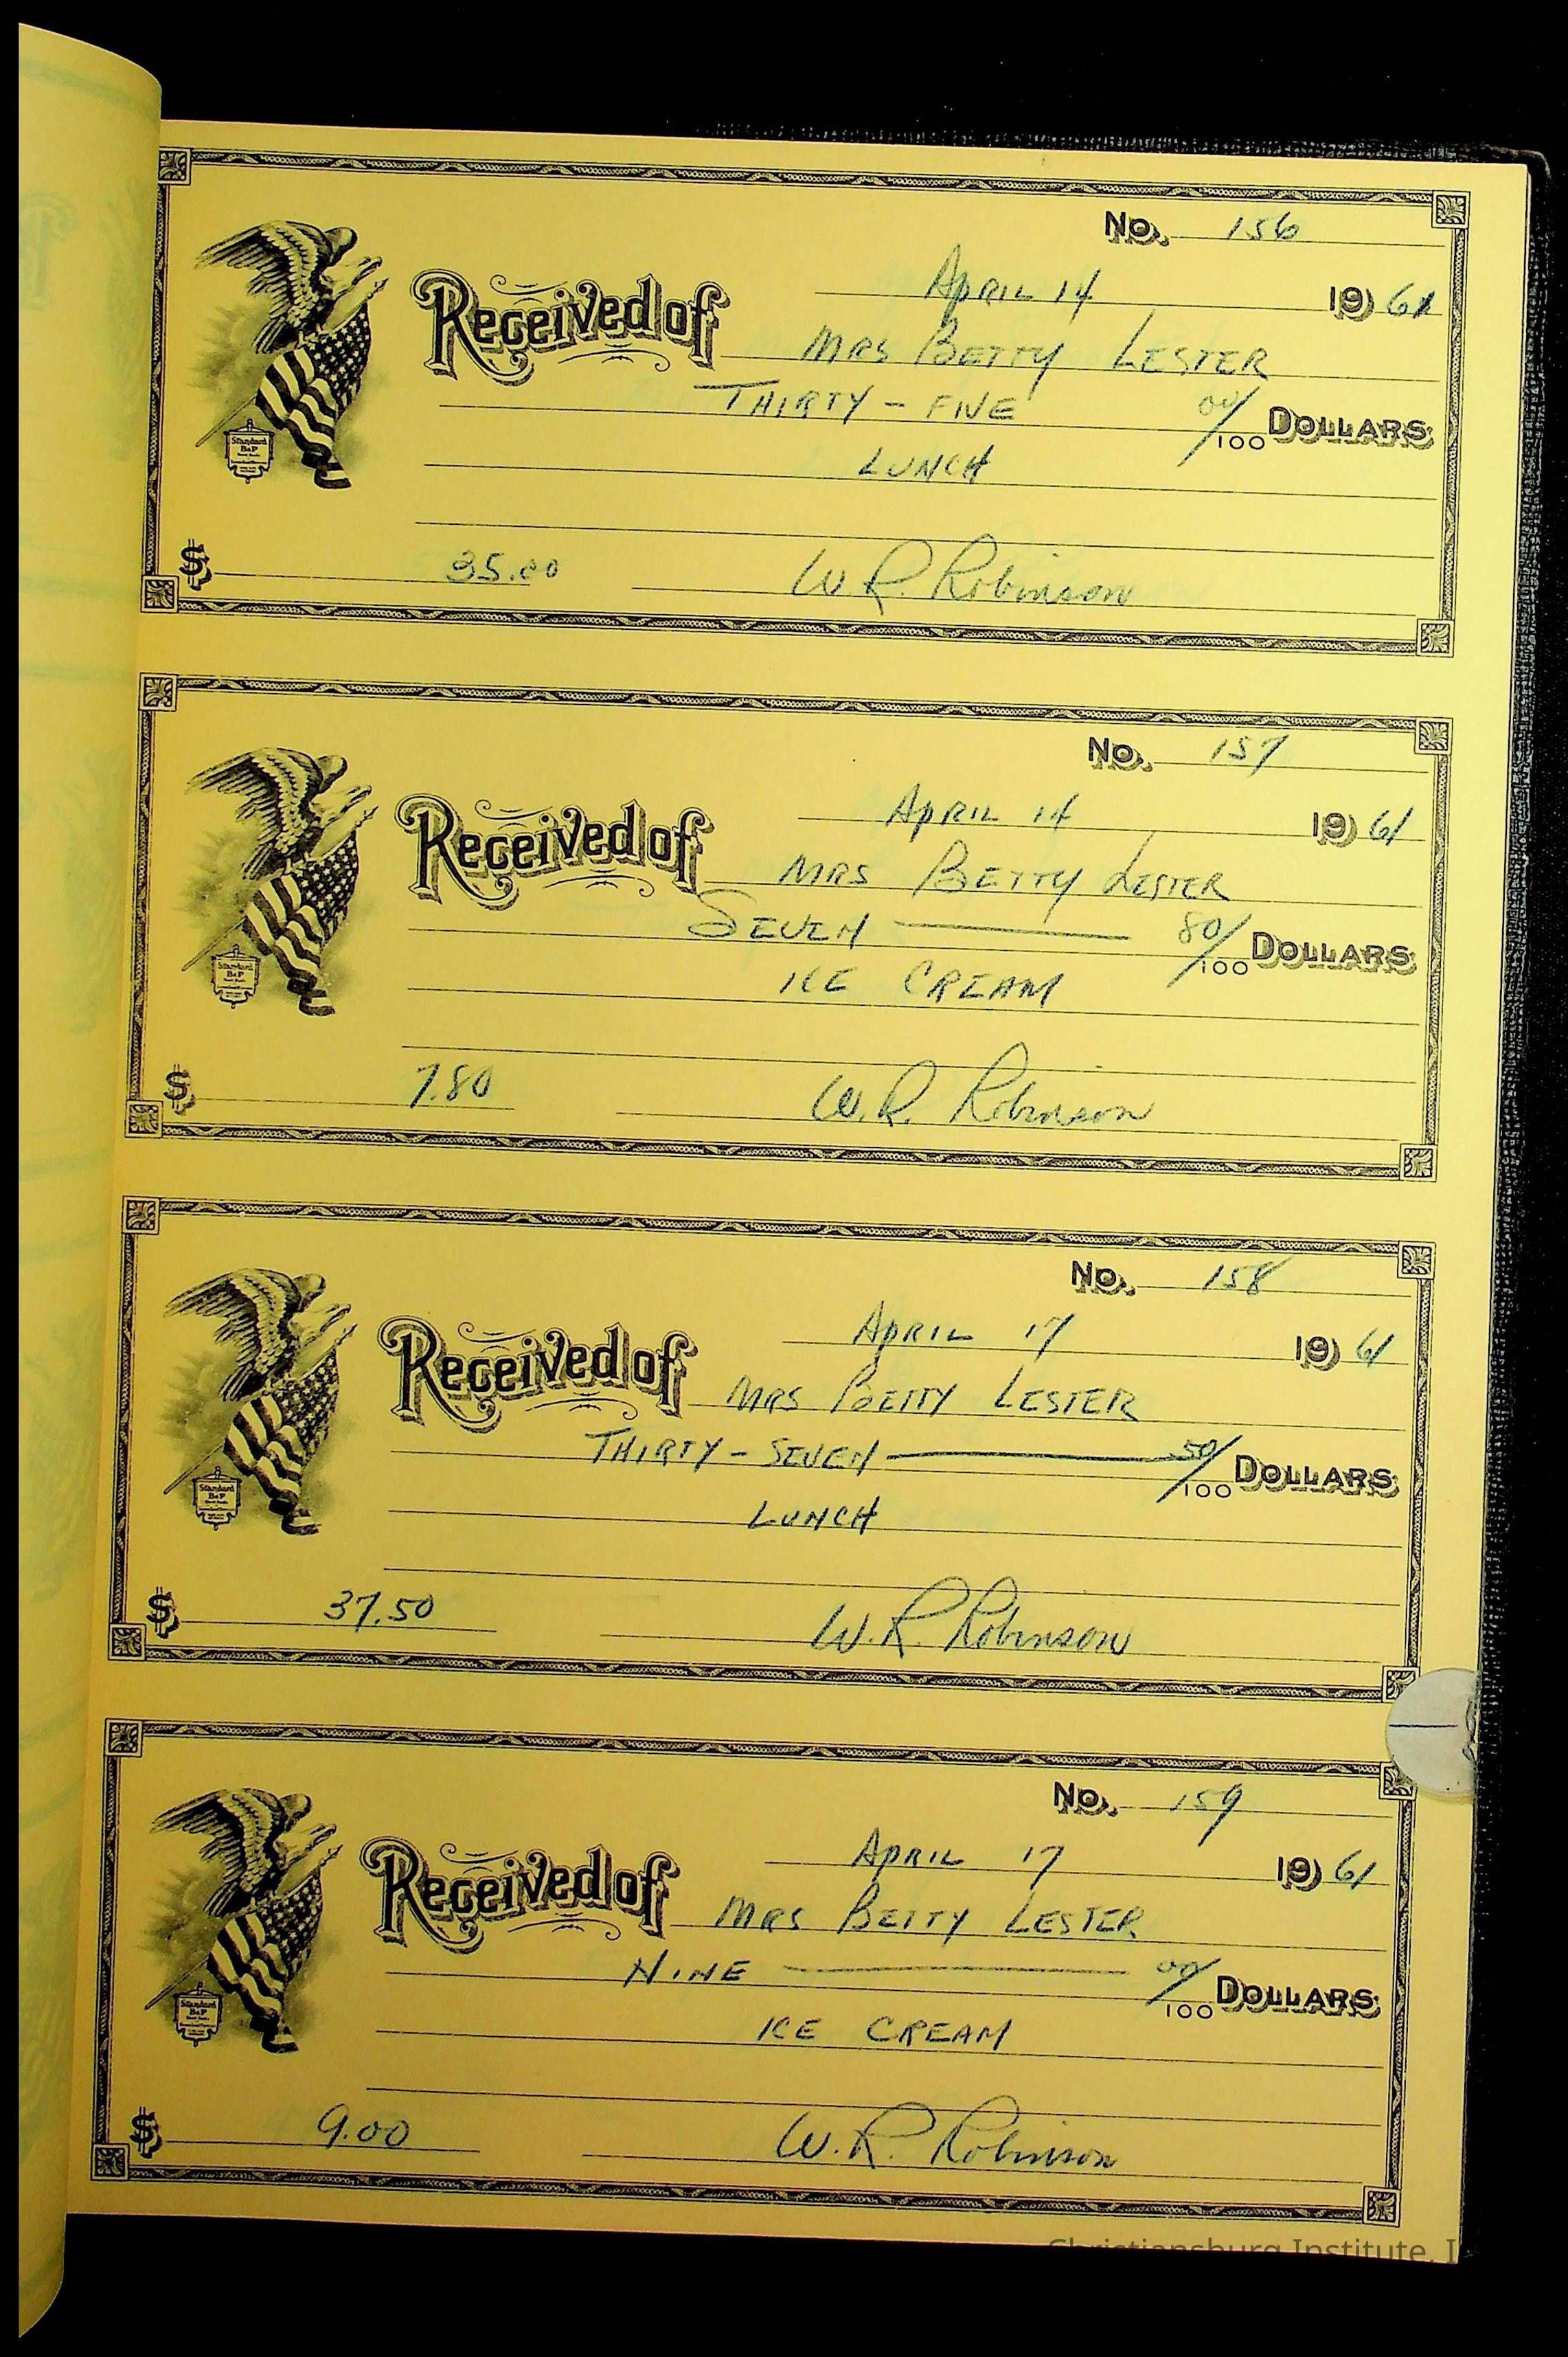 No. 156
April 14 1961
Received of Mrs Betty Lester
Thirty-Five 00/100 Dollars
Lunch
$ 35.00 W. R. Robinson
Standard
B&P
No. 157
April 14 1961
Received of Mrs Betty Lester
Seven 80/100 Dollars
Ice Cream
$ 7.80 W. R. Robinson
Standard
B&P
No. 158
April 17 1961
Received of Mrs Betty Lester
Thirty-Seven 50/100 Dollars
Lunch
$ 37.50 W. R. Robinson
Standard
B&P
No. 159
April 17 1961
Received of Mrs Betty Lester
Nine 00/100 Dollars
Ice Cream
$ 9.00 W. R. Robinson
Standard
B&P
Christiansburg Institute, I